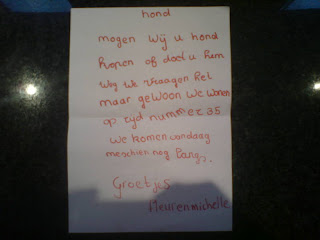 hond
mogen wij u hond
kopen of doet u hem
weg we vraagen het
maar gewoon we wonen
op eyd nummer 35
we komen vandaag
meschien nog langs.
Groetjes
fleurenmichelle